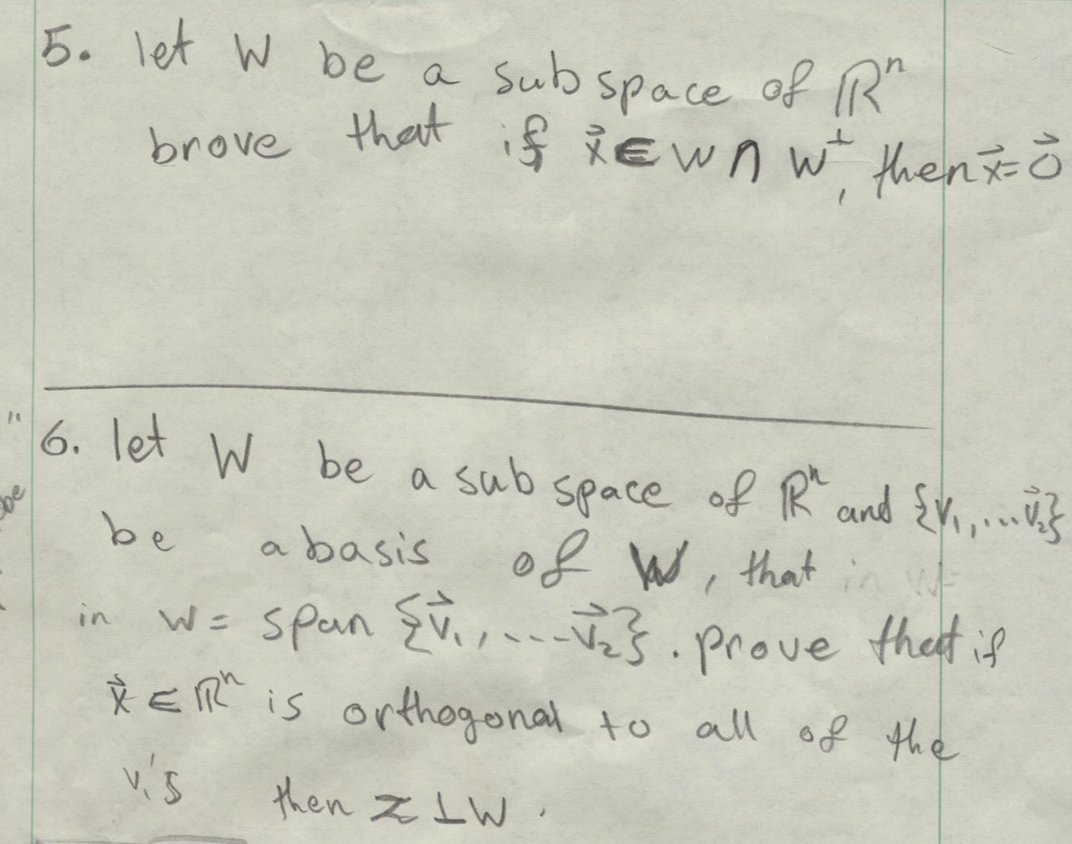 5. let W be a subspace of ℝⁿ
brove that if x⃗ ∈ W ∩ W⊥, then x⃗ = 0⃗
6. let W be a subspace of ℝⁿ and {v₁, ... v⃗₂}
be a basis of W, that in W=
in W = span {v⃗₁, ... v⃗₂}. prove that if
x⃗ ∈ ℝⁿ is orthogonal to all of the
vᵢ's then z ⊥ W.
be